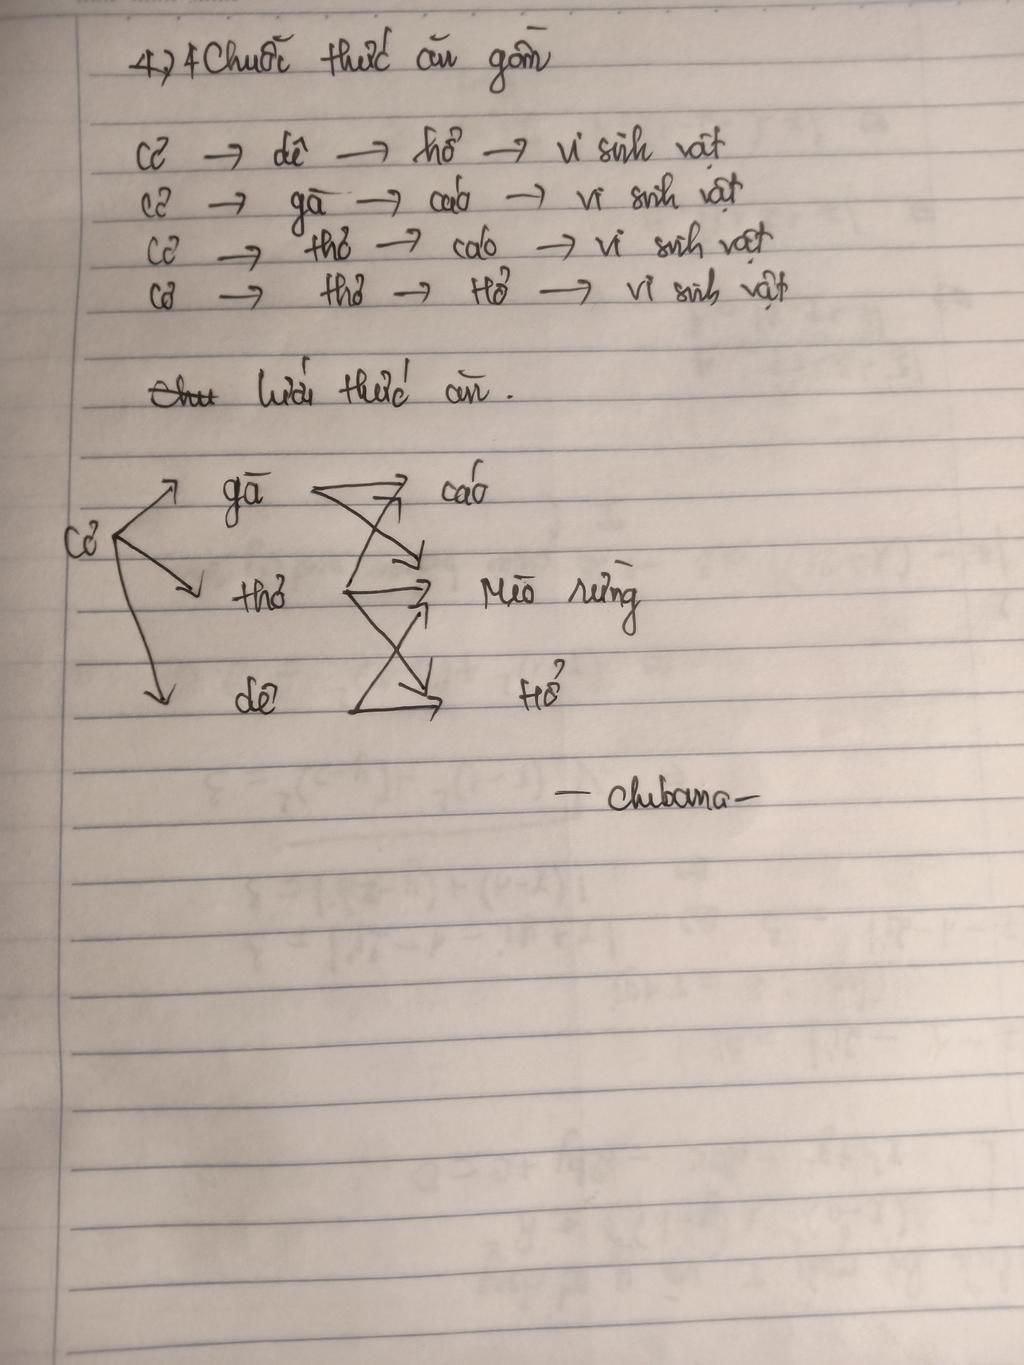 4, 4 Chuỗi thức ăn gồm
Cỏ → dê → hổ → vi sinh vật
Cỏ → gà → cáo → vi sinh vật
Cỏ → thỏ → cáo → vi sinh vật
Cỏ → thỏ → Hổ → vi sinh vật
lưới thức ăn.
gà cáo
Cỏ
thỏ Mèo rừng
dê Hổ
- chibana -